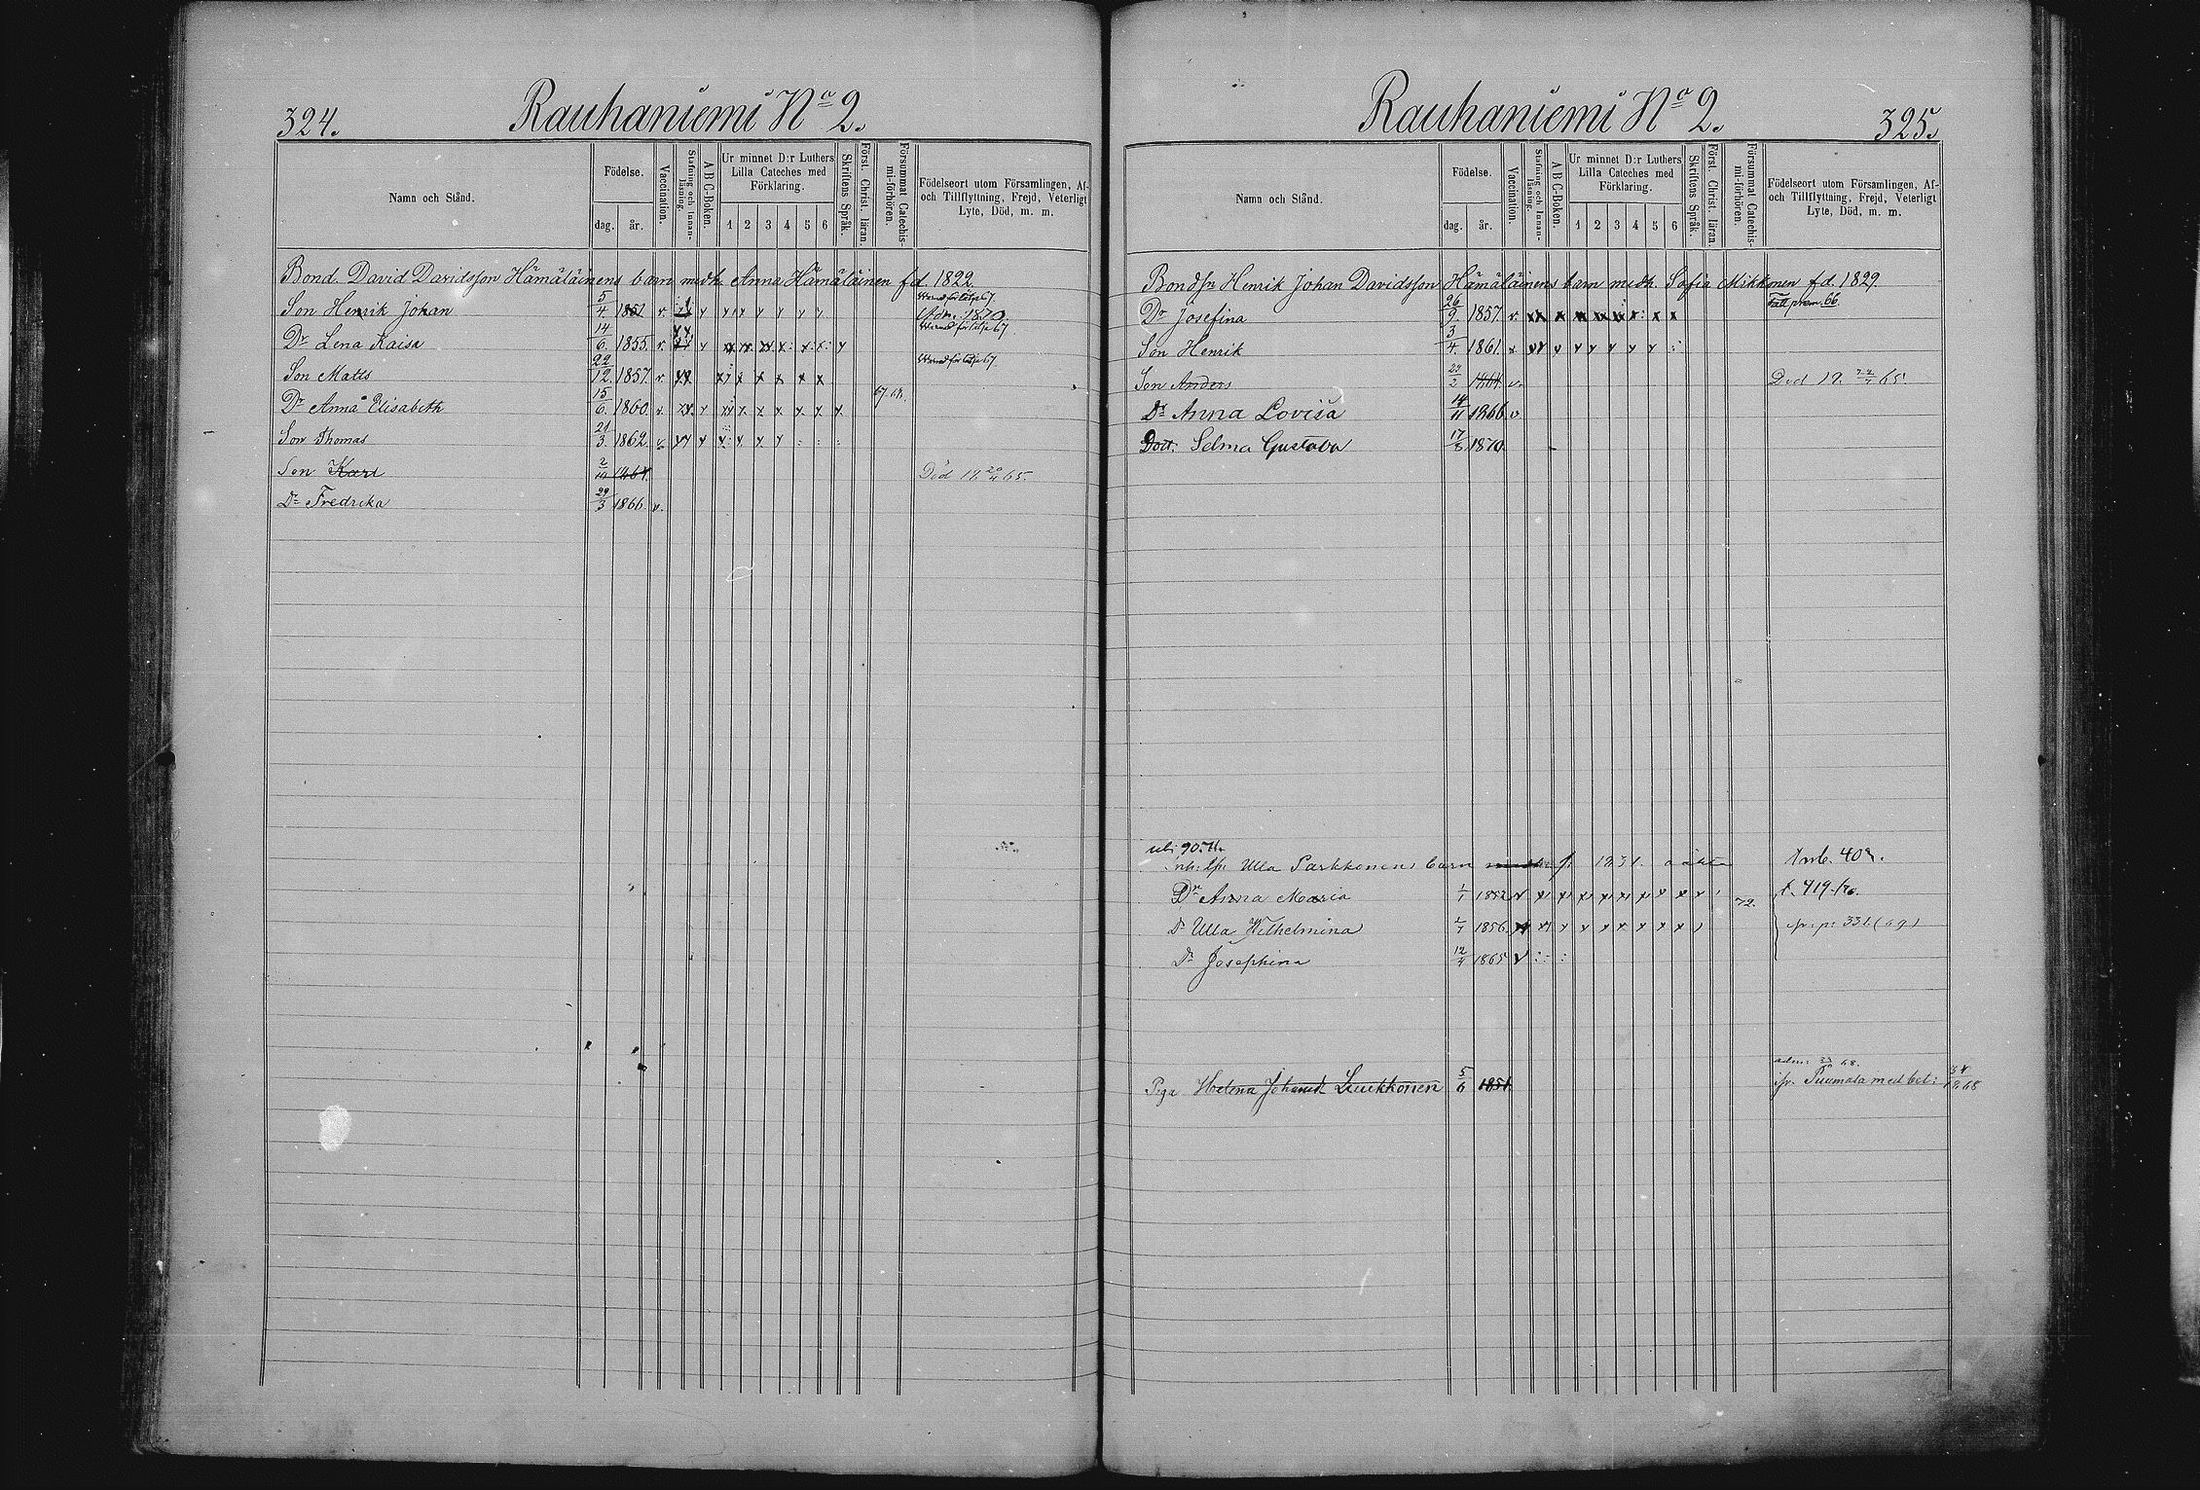 324.
Rauhaniemi No 2.
Namn och Stånd.
Födelse.
dag.
år.
Vaccination.
Stafning och Innan-läsning.
A B C-Boken.
Ur minnet D:r Luthers
Lilla Cateches med
Förklaring.
1 2 3 4 5 6
Skriftens Språk.
Först. Christ. läran.
Försummat Catechis-
mi-förhören.
Födelseort utom Församlingen, Af-
och Tillflyttning, Frejd, Veterligt
Lyte, Död, m. m.
Bond. David Davidsson Hämäläinens barn medh. Anna Hämäläinen fd. 1822
Son Henrik Johan 5/4 1851. v.
Adm. 1870.
Dr Lena Kaisa 14/6 1855. v.
Son Matts 22/12 1857. v.
Dr Anna Elisabeth 15/6 1860. v. 67. 68.
Son Thomas 21/3 1862. v.
Son Karl 2/10 1864. Död 65.
Dr Fredrika 29/3 1866. v.
325.
Rauhaniemi No 2.
Namn och Stånd.
Födelse.
dag.
år.
Vaccination.
Stafning och Innan-
läsning.
A B C-Boken.
Ur minnet D:r Luthers
Lilla Cateches med
Förklaring.
1 2 3 4 5 6
Skriftens Språk.
Först. Christ. läran.
Försummat Catechis-
mi-förhören.
Födelseort utom Församlingen, Af-
och Tillflyttning, Frejd, Veterligt
Lyte, Död, m. m.
Bondsn Henrik Johan Davidsson Hämäläinens barn medh. Sofia Mikkonen fd. 1829.
Dr Josefina 26/9 1857. v. 66.
Son Henrik 3/4 1861.
Son Anders 1864 v. Död 65.
Dr Anna Lovisa 14/11 1866 v.
Dott. Selma Gustava 17/8 1870.
Ulla Parkkonens barn f. 1831.
Dr Anna Maria 1/1 1852 v 72.
Dr Ulla Wilhelmina 1856
Dr Josephina 12/4 1865 v
Piga Helena Luukkonen 5/6 1851 Puumala med bet: 1868